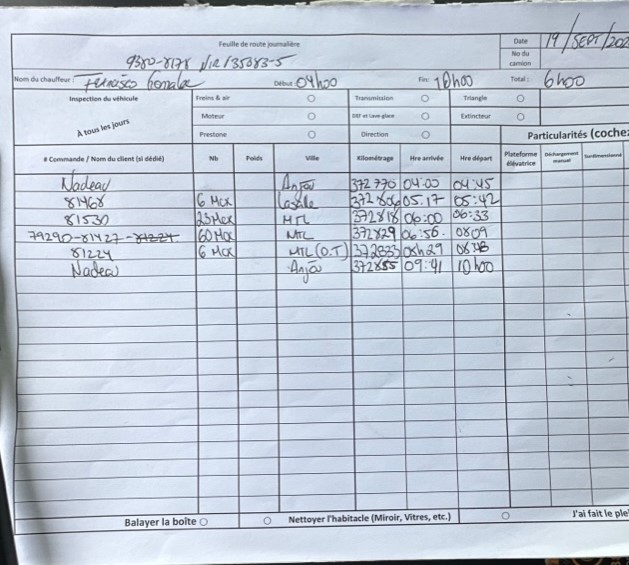 Feuille de route journalière
Date 19/SEPT/202
9380-8178 NIR 135083-5
No du camion
Nom du chauffeur: Début 04h00 Fin: 10h00 Total: 6h00
Inspection du véhicule Freins & air Transmission Triangle
À tous les jours Moteur DEF et Lave-glace Extincteur
Prestone Direction Particularités (coche
# Commande / Nom du client (si dédié) Nb Poids Ville Kilométrage Hre arrivée Hre départ Plateforme élévatrice Déchargement manuel Surdimensionné
Nadeau Anjou 372 770 04:00 04:45
81468 6 Mcx Lasalle 372 806 05:17 05:42
81530 23 Mcx MTL 372818 06:00 06:33
79290-81427-81224 60 Mcx MTL 372829 06:56 0809
81224 6 Mcx MTL (O.T) 372833 08h29 08:48
Nadeau Anjou 372855 09:41 10h00
Balayer la boîte Nettoyer l'habitacle (Miroir, Vitres, etc.) J'ai fait le ple